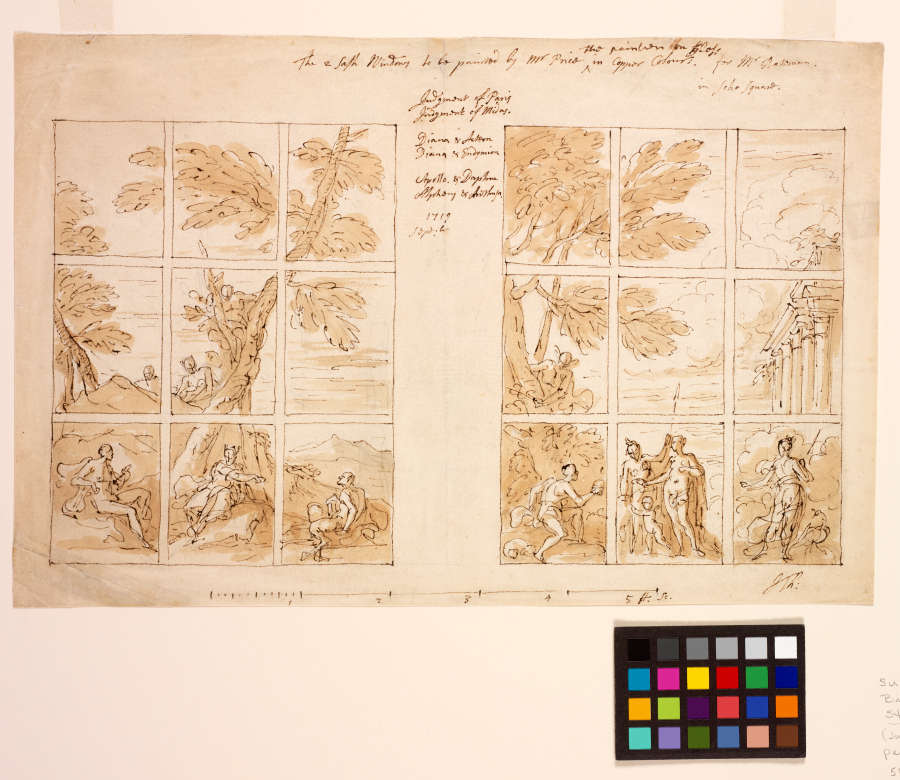 the painter upon Glass
The 2 Sash Windows to be painted by Mr Price ^ in Copper Colours. for Mr Bateman.
in Soho Square.
Judgment of Paris
Judgment of Midas.
Diana & Acteon
Diana & Endymion
Apollo & Daphne
Alpheus & Arethusa
1719
Sept.
1 2 3 4 5 ft.
JTh:
Su
Ba